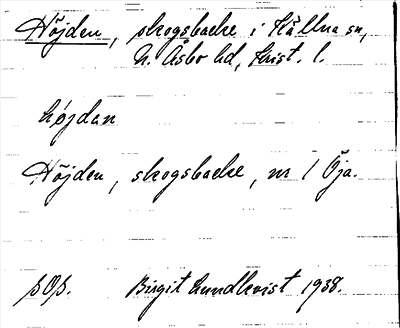 Höjden, skogsbacke i Källna sn,
N. Åsbo hd, Krist. l.
højdan
Höjden, skogsbacke, nr 1 Öja.
Birgit Lundkvist 1938.